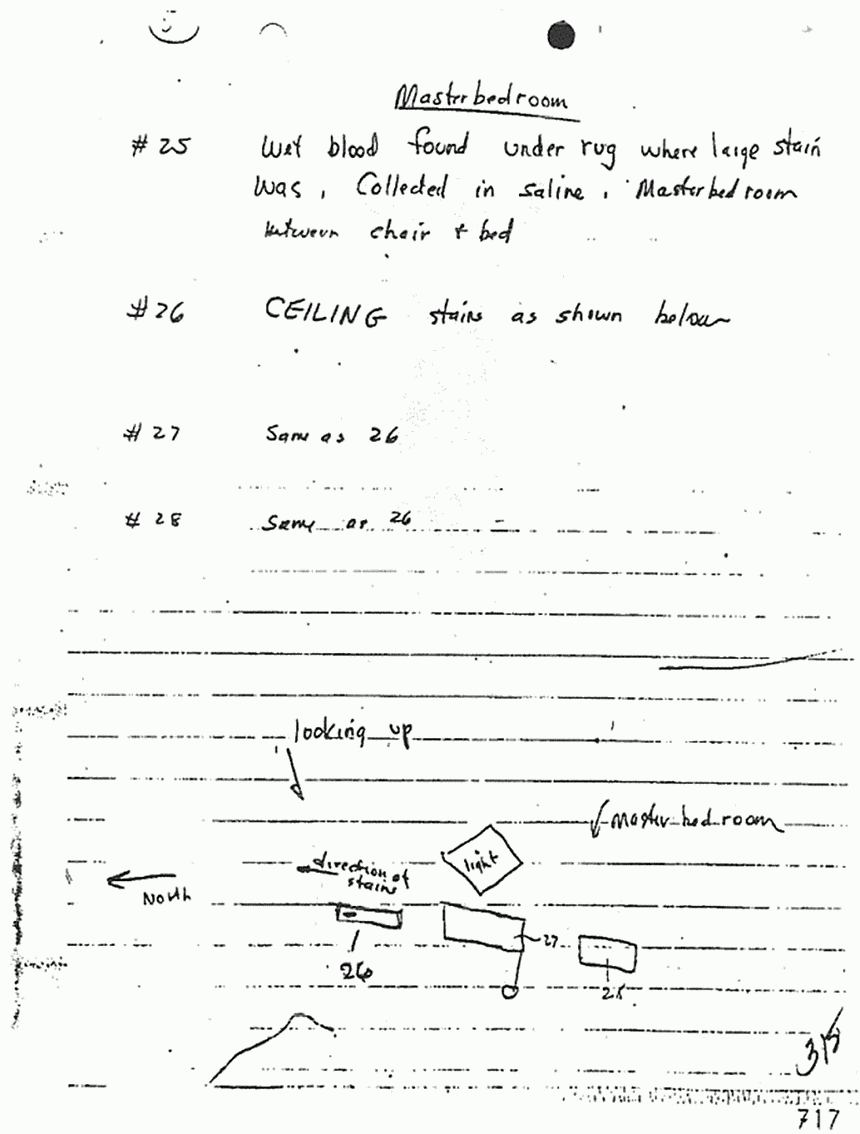 5
Master bedroom
# 25 Wet blood found under rug where large stain
was, Collected in saline. Master bedroom
between chair + bed
# 26 CEILING stains as shown below
# 27 Same as 26
# 28 Same as 26
looking up
Master bedroom
light
direction of
stains
North
27
26
28
717